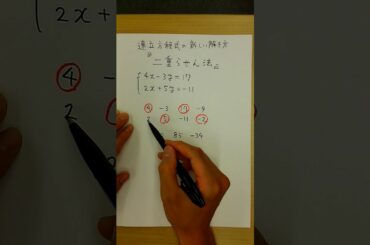 連立方程式の新しい解き方
"二重らせん法"
4x-3y=17
2x+5y=-11
4 -3 17 -4
2 5 -11 -2
85 -34